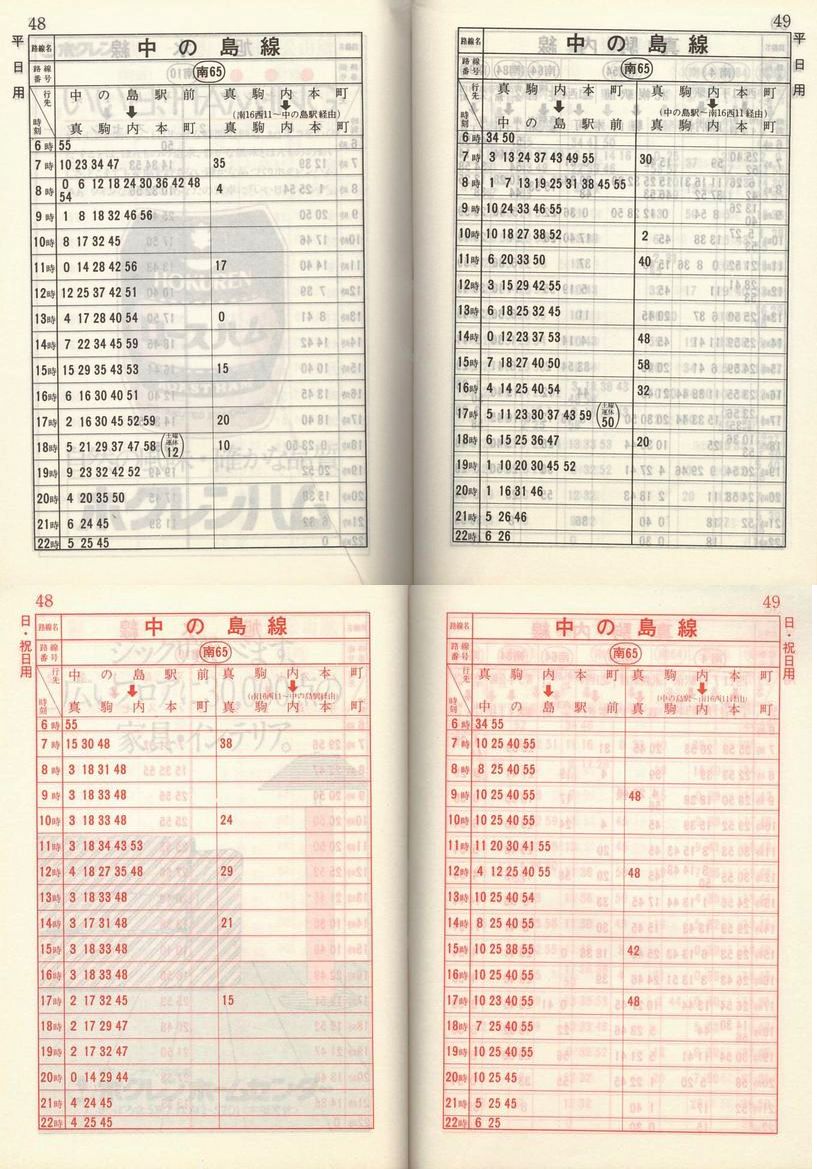 48
平日用
路線名 中の島線
路線番号 南65
行先 中の島駅前 真駒内本町
(南16西11〜中の島駅経由)
時刻 真駒内本町 真駒内本町
6時 55
7時 10 23 34 47 35
8時 0 6 12 18 24 30 36 42 48 4
54
9時 1 8 18 32 46 56
10時 8 17 32 45
11時 0 14 28 42 56 17
12時 12 25 37 42 51
13時 4 17 28 40 54 0
14時 7 22 34 45 59
15時 15 29 35 43 53 15
16時 6 16 30 40 51
17時 2 16 30 45 52 59 20
18時 5 21 29 37 47 58 (土曜運休12) 10
19時 9 23 32 42 52
20時 4 20 35 50
21時 6 24 45
22時 5 25 45
49
平日用
路線名 中の島線
路線番号 南65
行先 真駒内本町 真駒内本町
(中の島駅〜南16西11経由)
時刻 中の島駅前 真駒内本町
6時 34 50
7時 3 13 24 37 43 49 55 30
8時 1 7 13 19 25 31 38 45 55
9時 10 24 33 46 55
10時 10 18 27 38 52 2
11時 6 20 33 50 40
12時 3 15 29 42 55
13時 6 18 25 32 45
14時 0 12 23 37 53 48
15時 7 18 27 40 50 58
16時 4 14 25 40 54 32
17時 5 11 23 30 37 43 59 (土曜運休50)
18時 6 15 25 36 47 20
19時 1 10 20 30 45 52
20時 1 16 31 46
21時 5 26 46
22時 6 26
48
日・祝日用
路線名 中の島線
路線番号 南65
行先 中の島駅前 真駒内本町
(南16西11〜中の島駅経由)
時刻 真駒内本町 真駒内本町
6時 55
7時 15 30 48 38
8時 3 18 31 48
9時 3 18 33 48
10時 3 18 33 48 24
11時 3 18 34 43 53
12時 4 18 27 35 48 29
13時 3 18 33 48
14時 3 17 31 48 21
15時 3 18 33 48
16時 3 18 33 48
17時 2 17 32 45 15
18時 2 17 29 47
19時 2 17 32 47
20時 0 14 29 44
21時 4 24 45
22時 4 25 45
49
日・祝日用
路線名 中の島線
路線番号 南65
行先 真駒内本町 真駒内本町
(中の島駅〜南16西11経由)
時刻 中の島駅前 真駒内本町
6時 34 55
7時 10 25 40 55
8時 8 25 40 55
9時 10 25 40 55 48
10時 10 25 40 55
11時 11 20 30 41 55
12時 4 12 25 40 55 48
13時 10 25 40 54
14時 8 25 40 55
15時 10 25 38 55 42
16時 10 25 40 55
17時 10 23 40 55 48
18時 7 25 40 55
19時 10 25 40 55
20時 10 25 45
21時 5 25 45
22時 6 25